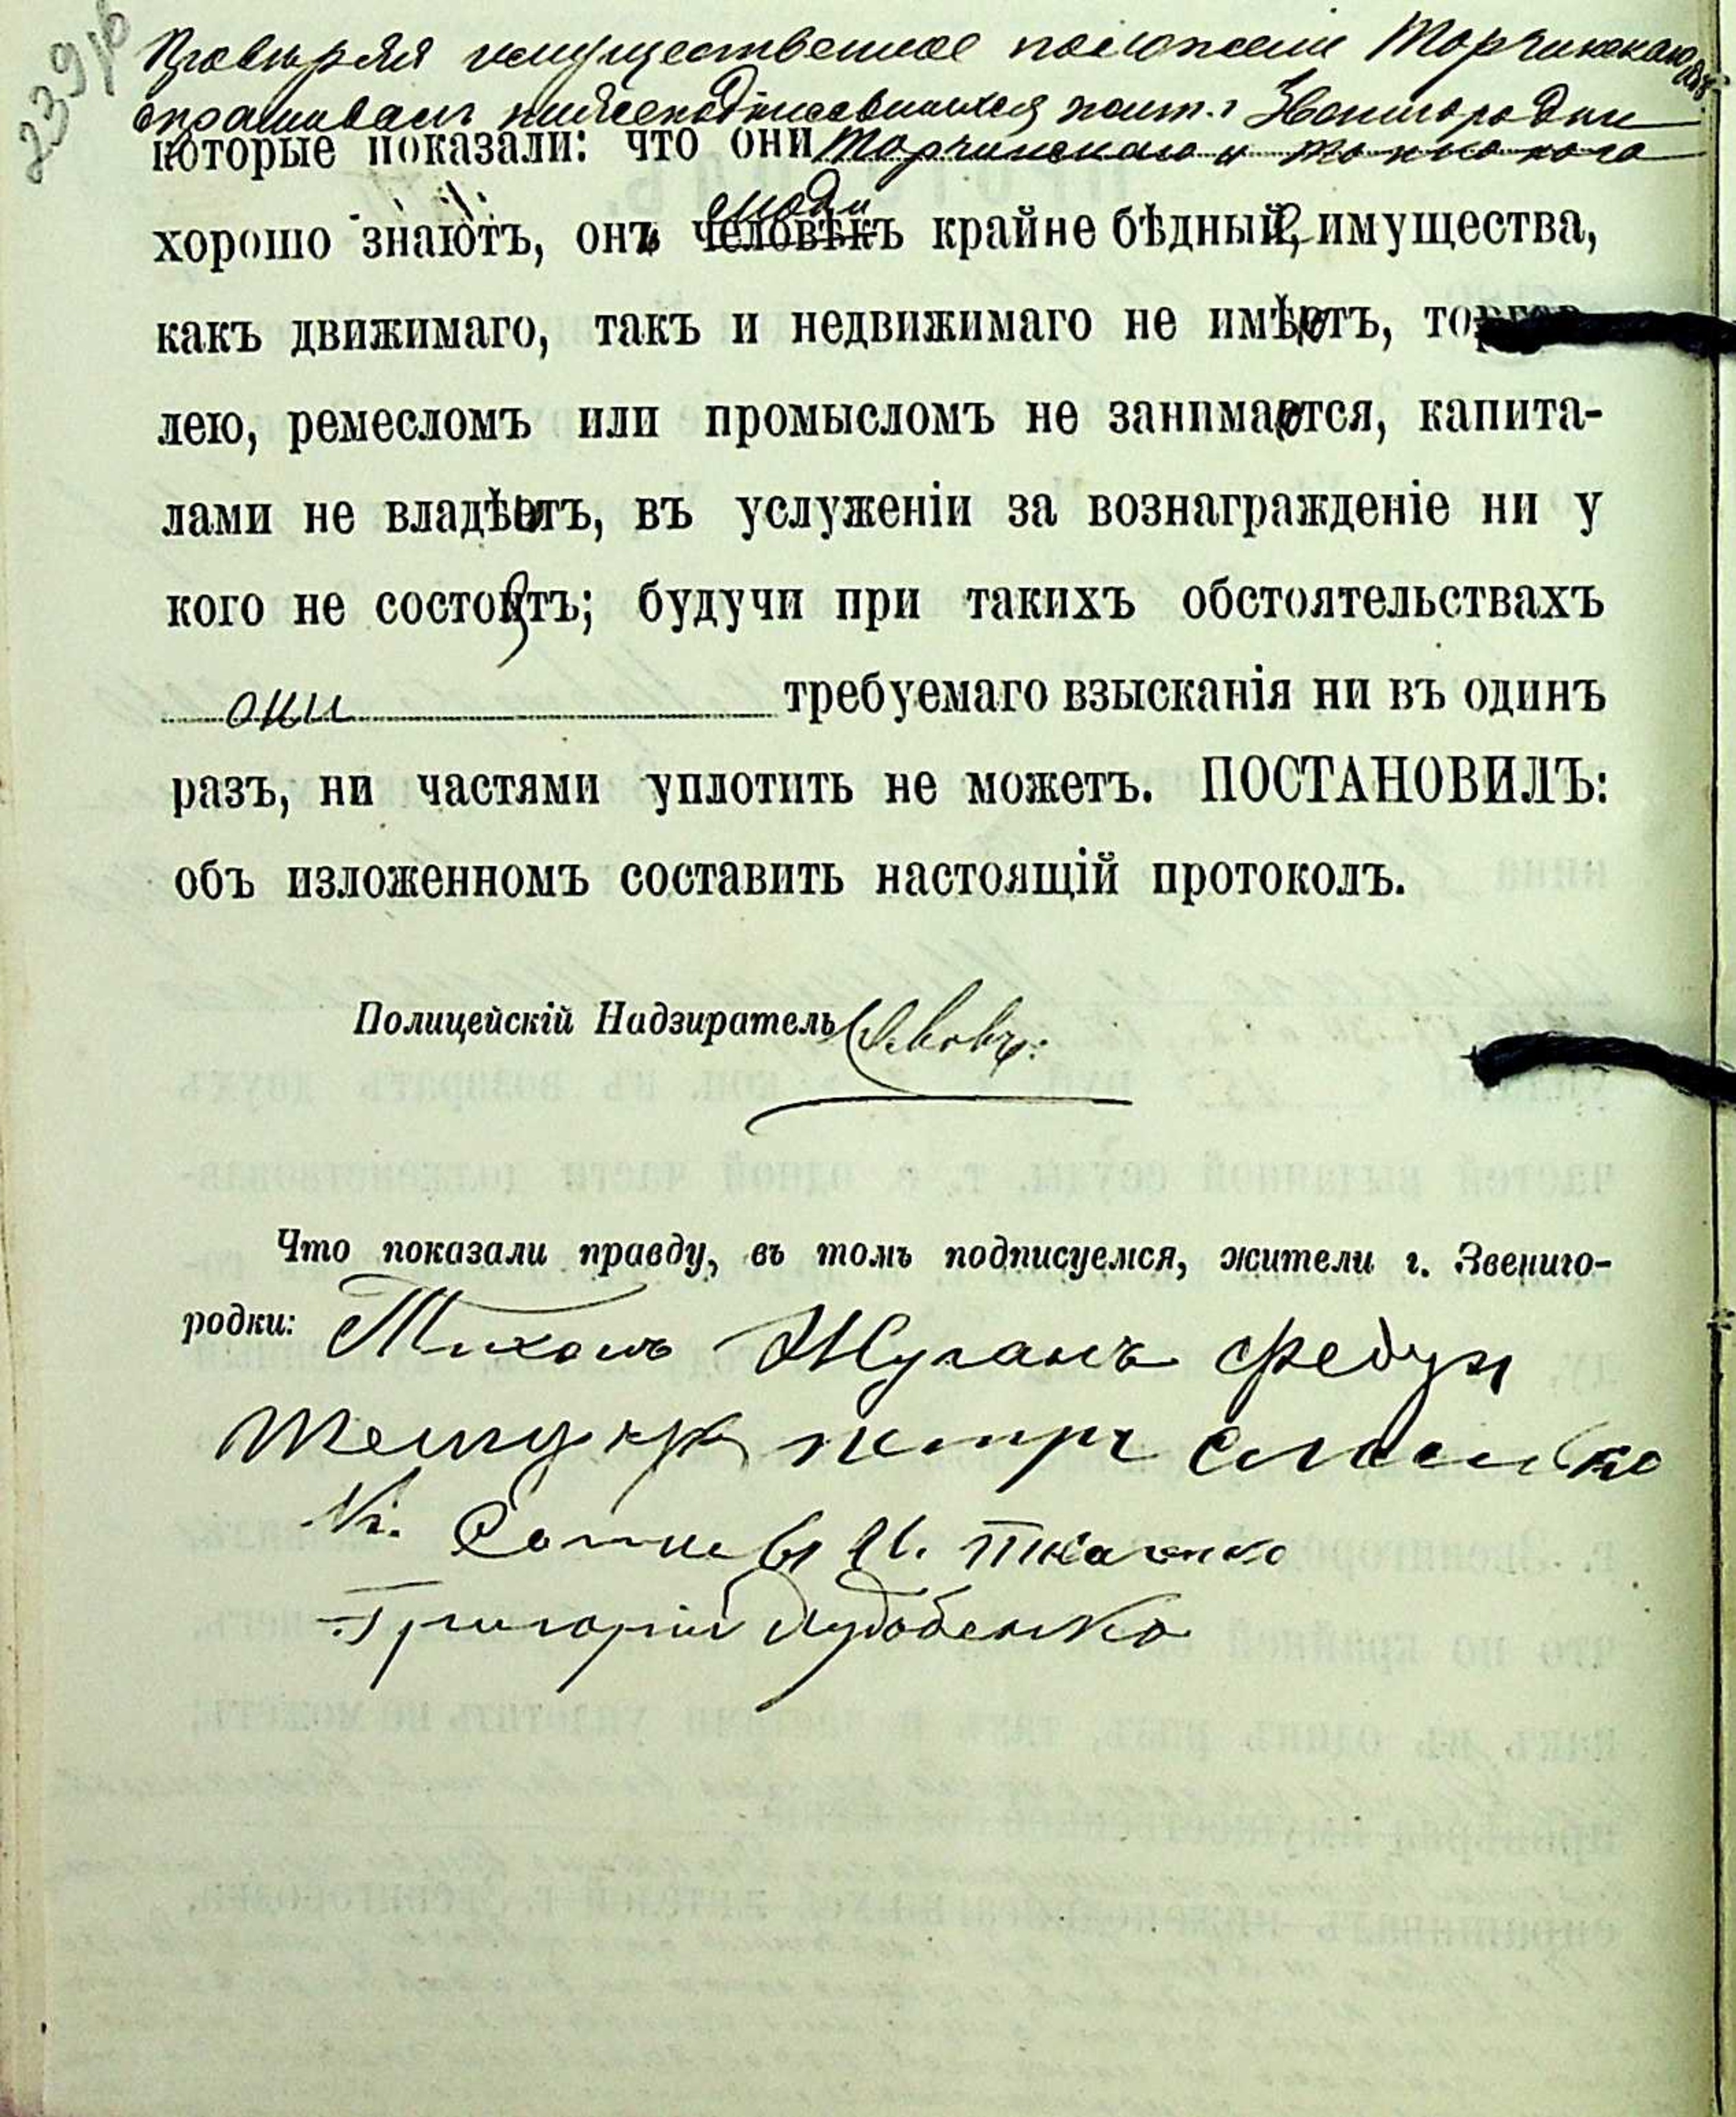 239 об
Провѣряя имущественное положеніе Торчинскаго
опрашивалъ нижеподписавшихся жит. г Звенигородки
которые показали: что они Торчинскаго и
хорошо знаютъ, они люди крайне бѣдные, имущества,
какъ движимаго, такъ и недвижимаго не имѣютъ, торгов-
лею, ремесломъ или промысломъ не занимаются, капита-
лами не владѣютъ, въ услуженіи за вознагражденіе ни у
кого не состоятъ; будучи при такихъ обстоятельствахъ
они требуемаго взысканія ни въ одинъ
разъ, ни частями уплотить не можетъ. ПОСТАНОВИЛЪ:
объ изложенномъ составить настоящій протоколъ.
Полицейскій Надзиратель
Что показали правду, въ томъ подписуемся, жители г. Звениго-
родки: Тихонъ Жуганъ Федур
петръ
И. Ткаченко
Григорій